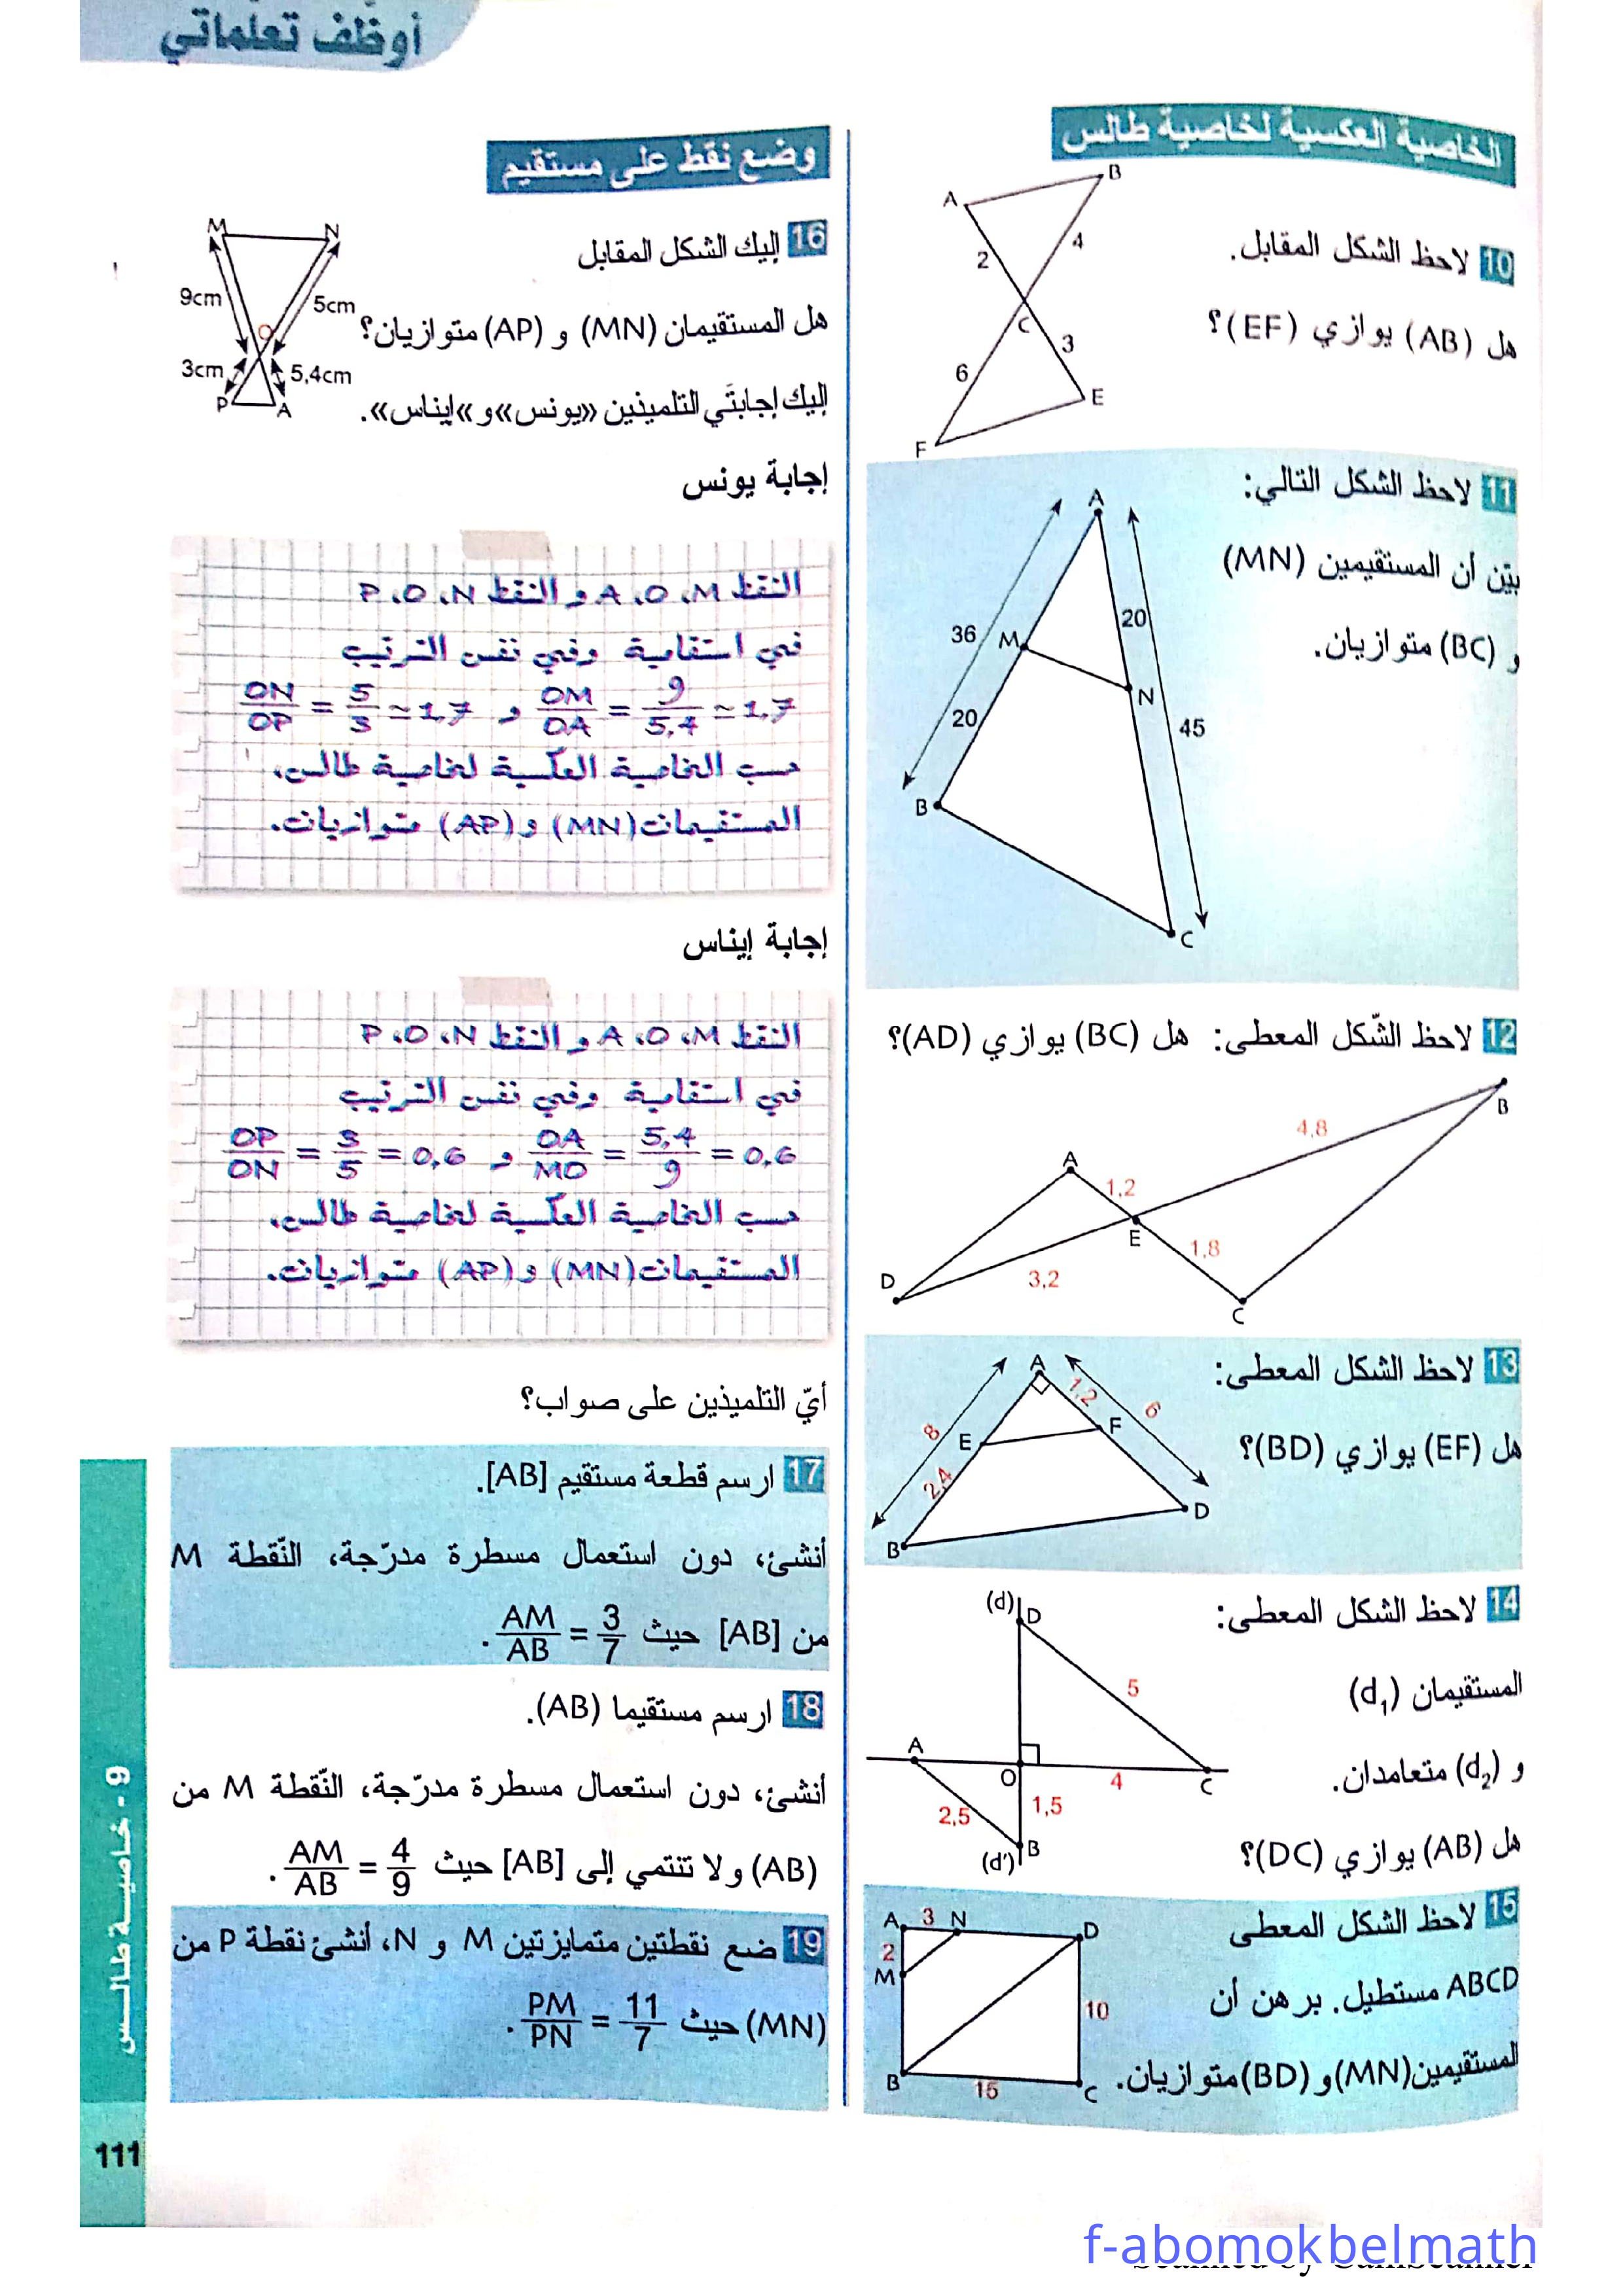 أوظّف تعلّماتي
الخاصية العكسية لخاصية طالس
10 لاحظ الشكل المقابل.
هل (AB) يوازي (EF)؟
A
B
2
4
C
3
6
E
F
11 لاحظ الشكل التالي:
بيّن أن المستقيمين (MN)
و (BC) متوازيان.
A
36
M
20
N
20
45
B
C
12 لاحظ الشّكل المعطى: هل (BC) يوازي (AD)؟
B
4,8
A
1,2
E
1,8
D
3,2
C
13 لاحظ الشكل المعطى:
هل (EF) يوازي (BD)؟
A
1,2
6
8
E
F
2,4
D
B
14 لاحظ الشكل المعطى:
المستقيمان (d₁)
و (d₂) متعامدان.
هل (AB) يوازي (DC)؟
(d)
D
5
A
O
4
C
2,5
1,5
B
(d')
15 لاحظ الشكل المعطى
ABCD مستطيل. برهن أن
المستقيمين (MN) و (BD) متوازيان.
A 3 N D
2
M
10
B 15 C
وضع نقط على مستقيم
16 إليك الشكل المقابل
هل المستقيمان (MN) و (AP) متوازيان؟
إليك إجابتَي التلميذين «يونس» و «إيناس».
M N
9cm
5cm
O
3cm
5,4cm
P A
إجابة يونس
النقط A ،O ،M و النقط P ،O ،N
في استقامية وفي نفس الترتيب
OM/OA = 9/5,4 ≃ 1,7 و ON/OP = 5/3 ≃ 1,7
حسب الخاصية العكسية لخاصية طالس،
المستقيمان (MN) و (AP) متوازيان.
إجابة إيناس
النقط A ،O ،M و النقط P ،O ،N
في استقامية وفي نفس الترتيب
OA/MO = 5,4/9 = 0,6 و OP/ON = 3/5 = 0,6
حسب الخاصية العكسية لخاصية طالس،
المستقيمان (MN) و (AP) متوازيان.
أيّ التلميذين على صواب؟
17 ارسم قطعة مستقيم [AB].
أنشئ، دون استعمال مسطرة مدرّجة، النّقطة M
من [AB] حيث AM/AB = 3/7.
18 ارسم مستقيما (AB).
أنشئ، دون استعمال مسطرة مدرّجة، النّقطة M من
(AB) ولا تنتمي إلى [AB] حيث AM/AB = 4/9.
19 ضع نقطتين متمايزتين M و N، أنشئ نقطة P من
(MN) حيث PM/PN = 11/7.
9 - خاصية طالس
111
f-abomokbelmath